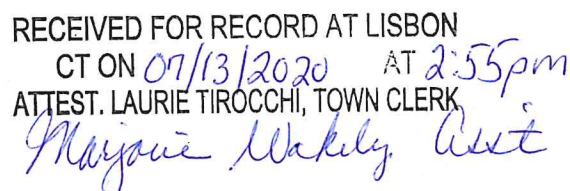 RECEIVED FOR RECORD AT LISBON
CT ON 07/13/2020 AT 2:55pm
ATTEST. LAURIE TIROCCHI, TOWN CLERK
Marjorie Wakely Asst